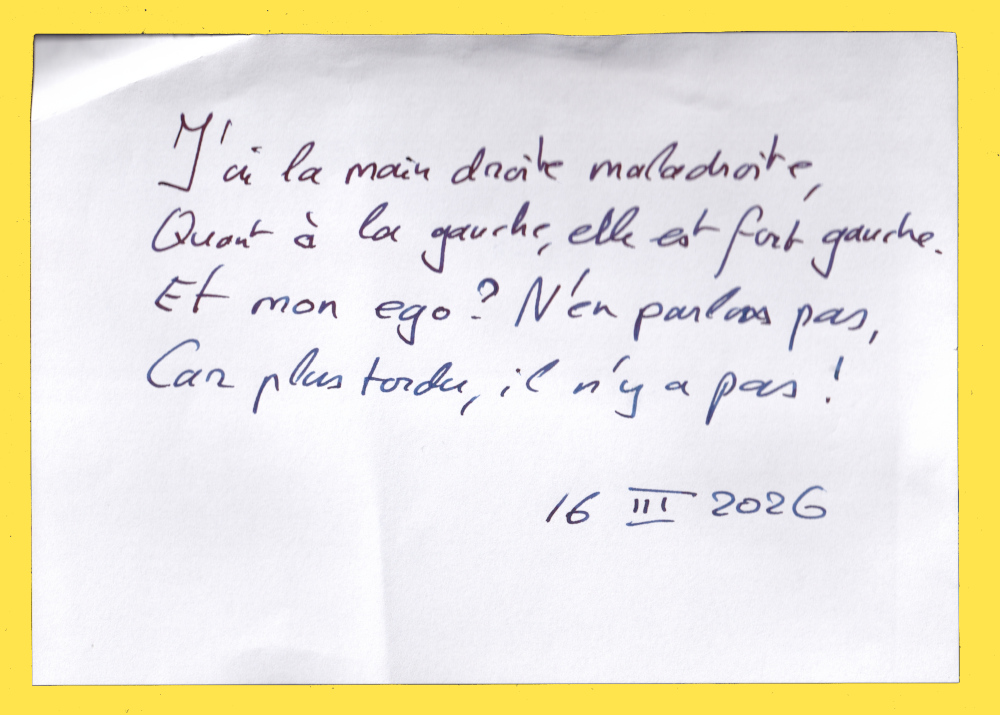 J'ai la main droite maladroite,
Quant à la gauche, elle est fort gauche.
Et mon ego? N'en parlons pas,
Car plus tordu, il n'y a pas !
16 III 2026